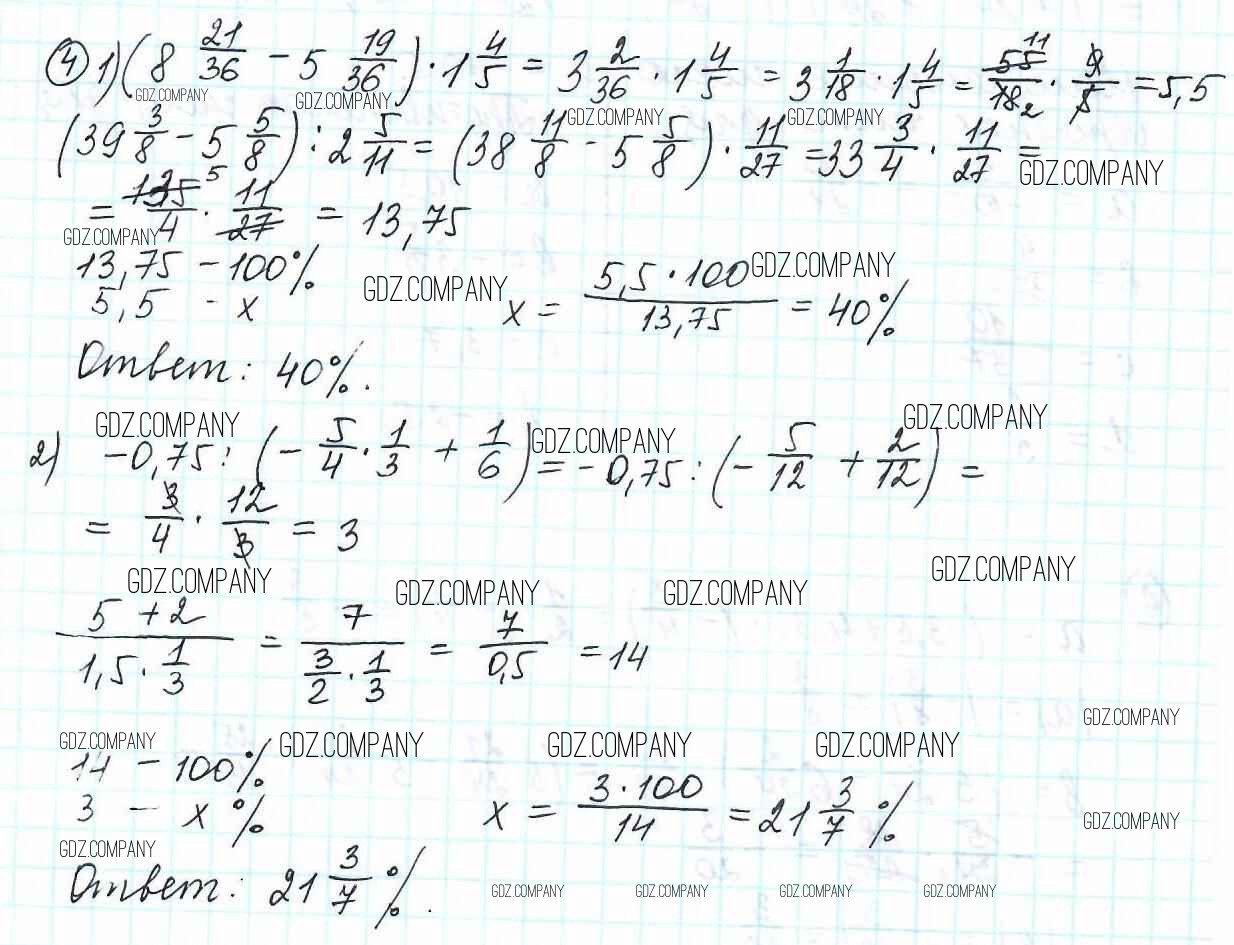 ④ 1) (8 21/36 − 5 19/36) · 1 4/5 = 3 2/36 · 1 4/5 = 3 1/18 · 1 4/5 = 55/18 · 9/5 = 5,5
11 2
GDZ.COMPANY GDZ.COMPANY GDZ.COMPANY GDZ.COMPANY
(39 3/8 − 5 5/8) : 2 5/11 = (38 11/8 − 5 5/8) · 11/27 = 33 3/4 · 11/27 =
GDZ.COMPANY
= 135/4 · 11/27 = 13,75
5
GDZ.COMPANY
13,75 − 100%
GDZ.COMPANY GDZ.COMPANY
5,5 - x x = 5,5 · 100/13,75 = 40%
Ответ: 40%.
GDZ.COMPANY GDZ.COMPANY GDZ.COMPANY
2) −0,75 : (− 5/4 · 1/3 + 1/6) = − 0,75 : (− 5/12 + 2/12) =
= 3/4 · 12/3 = 3
GDZ.COMPANY GDZ.COMPANY GDZ.COMPANY GDZ.COMPANY
5 + 2/1,5 · 1/3 = 7/3/2 · 1/3 = 7/0,5 = 14
GDZ.COMPANY
GDZ.COMPANY GDZ.COMPANY GDZ.COMPANY GDZ.COMPANY
14 − 100%
3 − x % x = 3 · 100/14 = 21 3/7 %
GDZ.COMPANY
GDZ.COMPANY
Ответ: 21 3/7 %.
GDZ.COMPANY GDZ.COMPANY GDZ.COMPANY GDZ.COMPANY